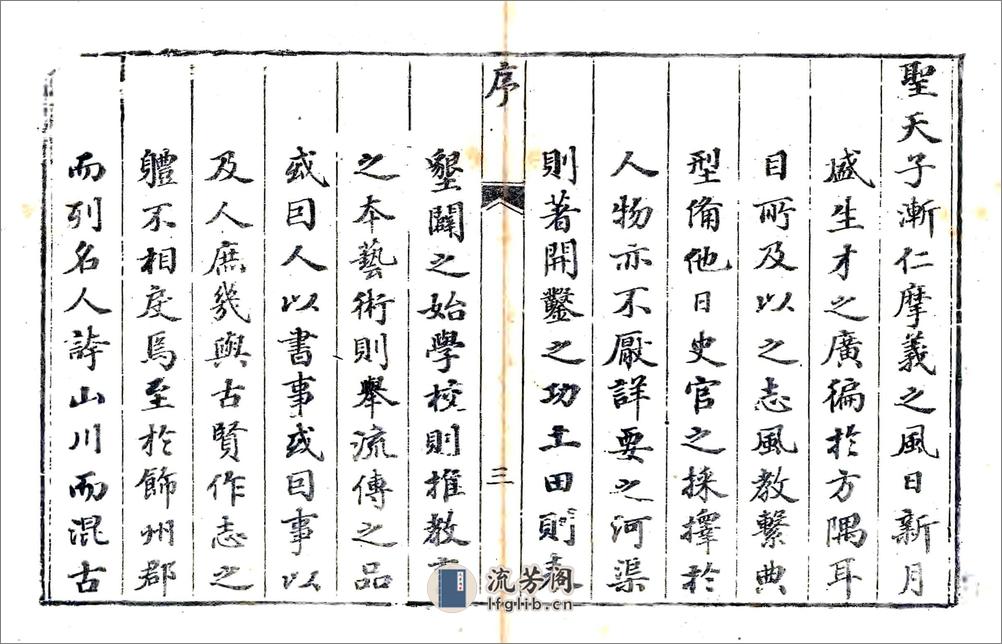 聖天子漸仁摩義之風日新月
盛生才之廣徧於方隅耳
目所及以之志風教繫典
型備他日史官之採擇於
人物亦不厭詳要之河渠
則著開鑿之功土田則表
序
三
墾闢之始學校則推教
之本藝術則舉流傳之品
或囙人以書事或囙事以
及人庶幾與古賢作志之
軆不相戾焉至於飾州郡
而列名人誇山川而混古
流芳阁
lfglib.cn